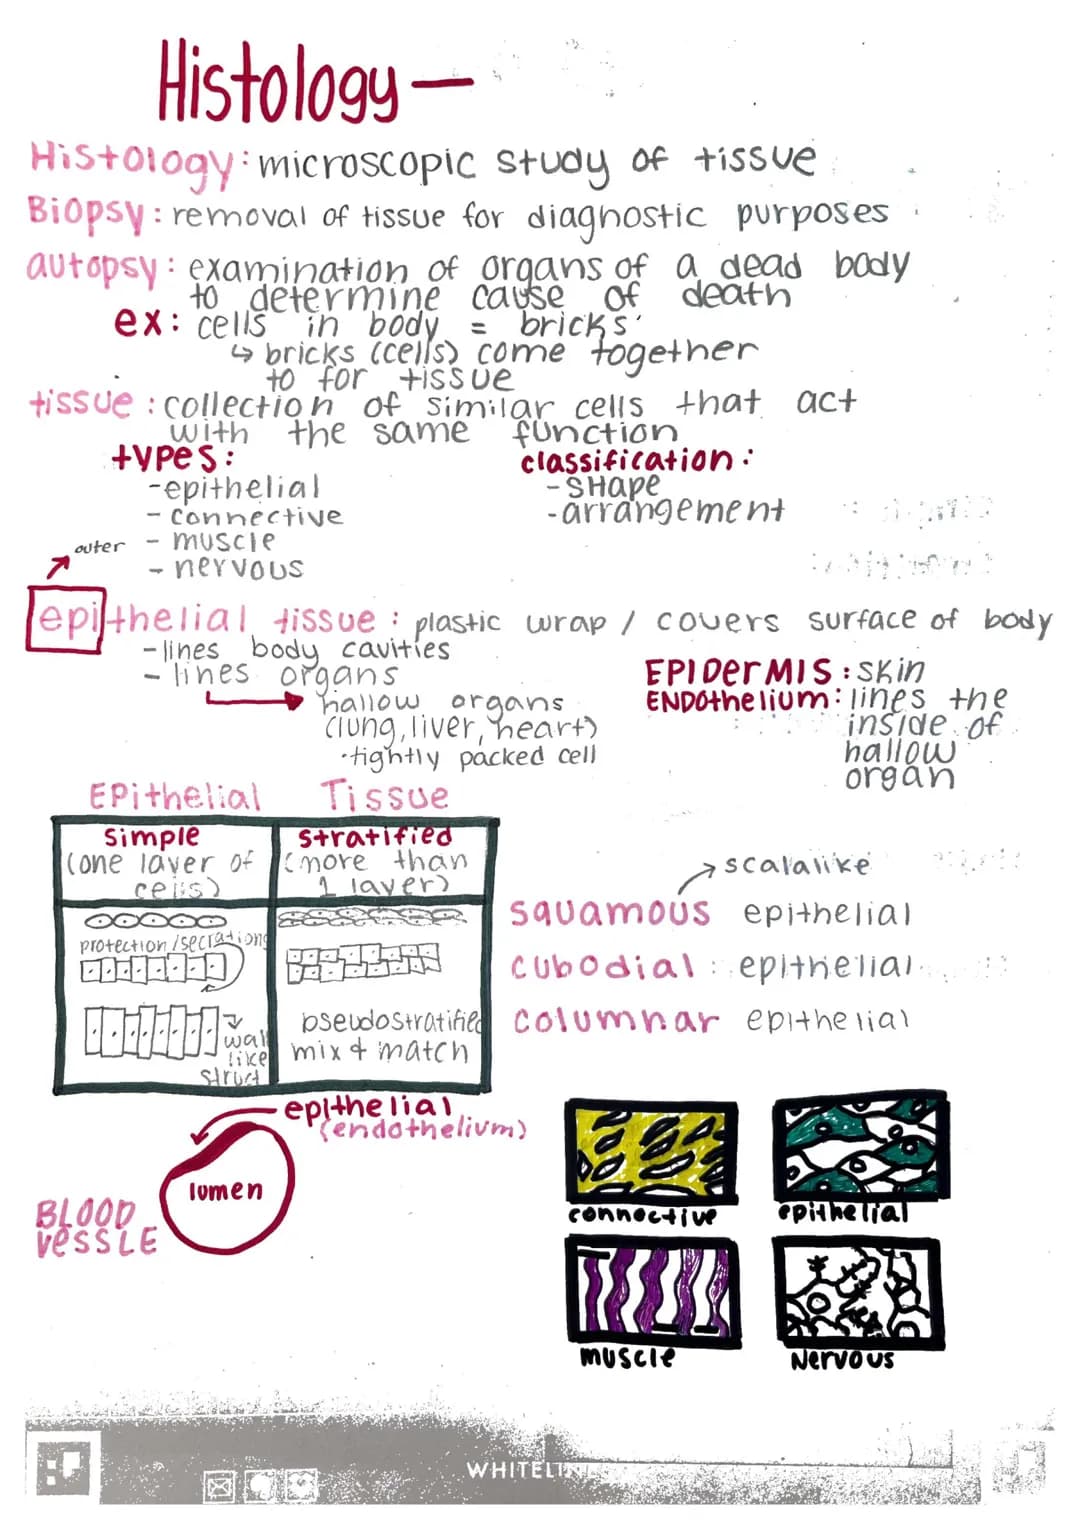 Histology —
Histology: microscopic study of tissue
Biopsy: removal of tissue for diagnostic purposes
autopsy: examination of organs of a dead body
to determine cause of death
ex: cells in body = bricks
↳ bricks (cells) come together
to for tissue
tissue: collection of similar cells that act
with the same function
types:
-epithelial
- connective
- muscle
- nervous
classification:
- SHape
-arrangement
outer
epithelial tissue: plastic wrap / covers surface of body
-lines body cavities
- lines organs
hallow organs
(lung, liver, heart)
·tightly packed cell
EPIDerMIS: skin
ENDOthelium: lines the
inside of
hallow
organ
EPithelial Tissue
simple
(one layer of
cells)
stratified
(more than
1 layer)
protection/secrations
wall
like
struct
pseudostratified
mix & match
scalalike
squamous epithelial
cubodial: epithelial
columnar epithelial
epithelial
(endothelium)
lumen
BLOOD
VESSLE
connective
epithelial
muscle
Nervous